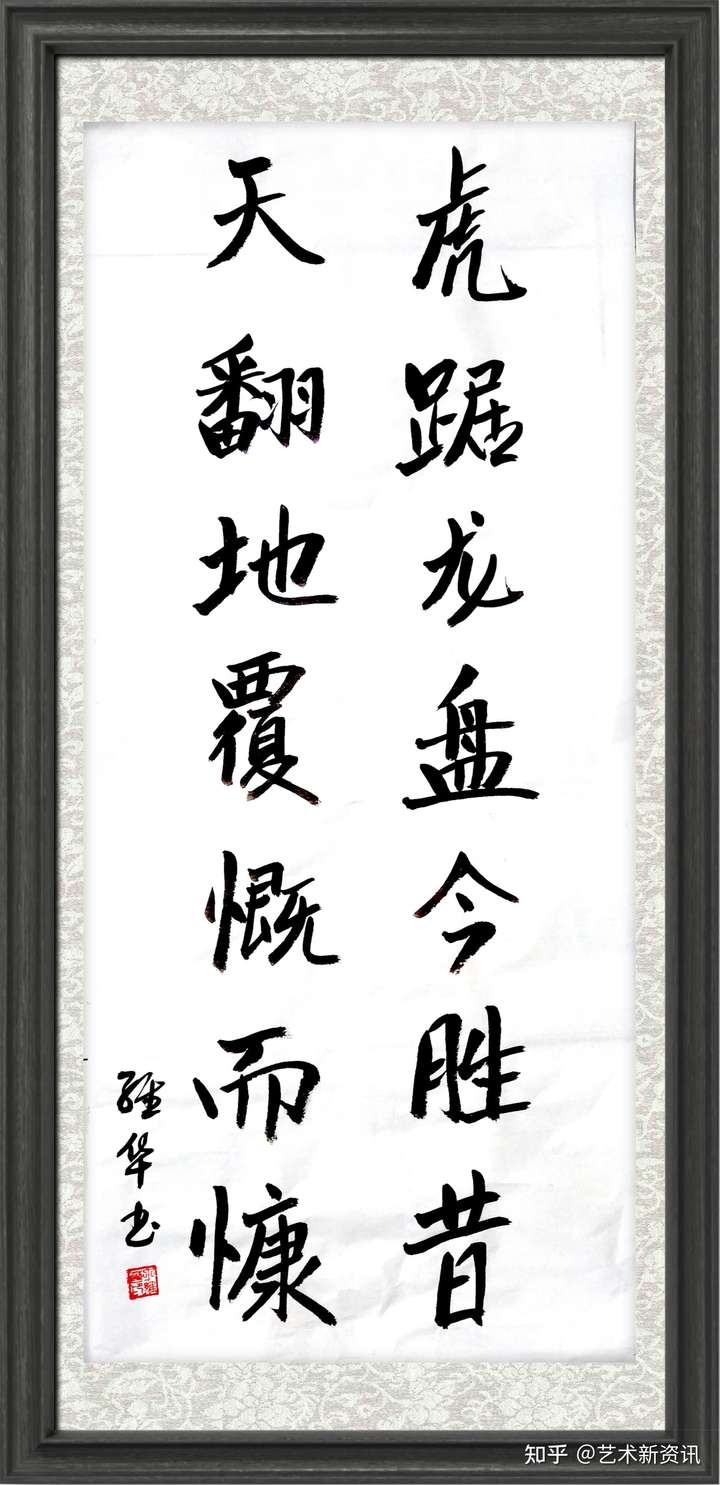 虎踞龙盘今胜昔
天翻地覆慨而慷
华书
知乎 @艺术新资讯